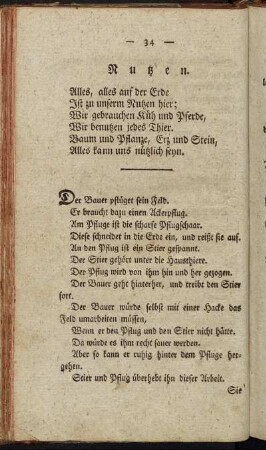 — 34 —
Nutzen.
Alles, alles auf der Erde
Ist zu unserm Nutzen hier;
Wir gebrauchen Küh und Pferde,
Wir benutzen jedes Thier.
Baum und Pflanze, Erz und Stein,
Alles kann uns nützlich seyn.
Der Bauer pflüget sein Feld.
Er braucht dazu einen Ackerpflug.
Am Pfluge ist die scharfe Pflugschaar.
Diese schneidet in die Erde ein, und reißt sie auf.
An den Pflug ist ein Stier gespannt.
Der Stier gehört unter die Hausthiere.
Der Pflug wird von ihm hin und her gezogen.
Der Bauer geht hinterher, und treibt den Stier
fort.
Der Bauer würde selbst mit einer Hacke das
Feld umarbeiten müssen,
Wenn er den Pflug und den Stier nicht hätte.
Da würde es ihm recht sauer werden.
Aber so kann er ruhig hinter dem Pfluge her-
gehen.
Stier und Pflug überhebt ihn dieser Arbeit.
Sie